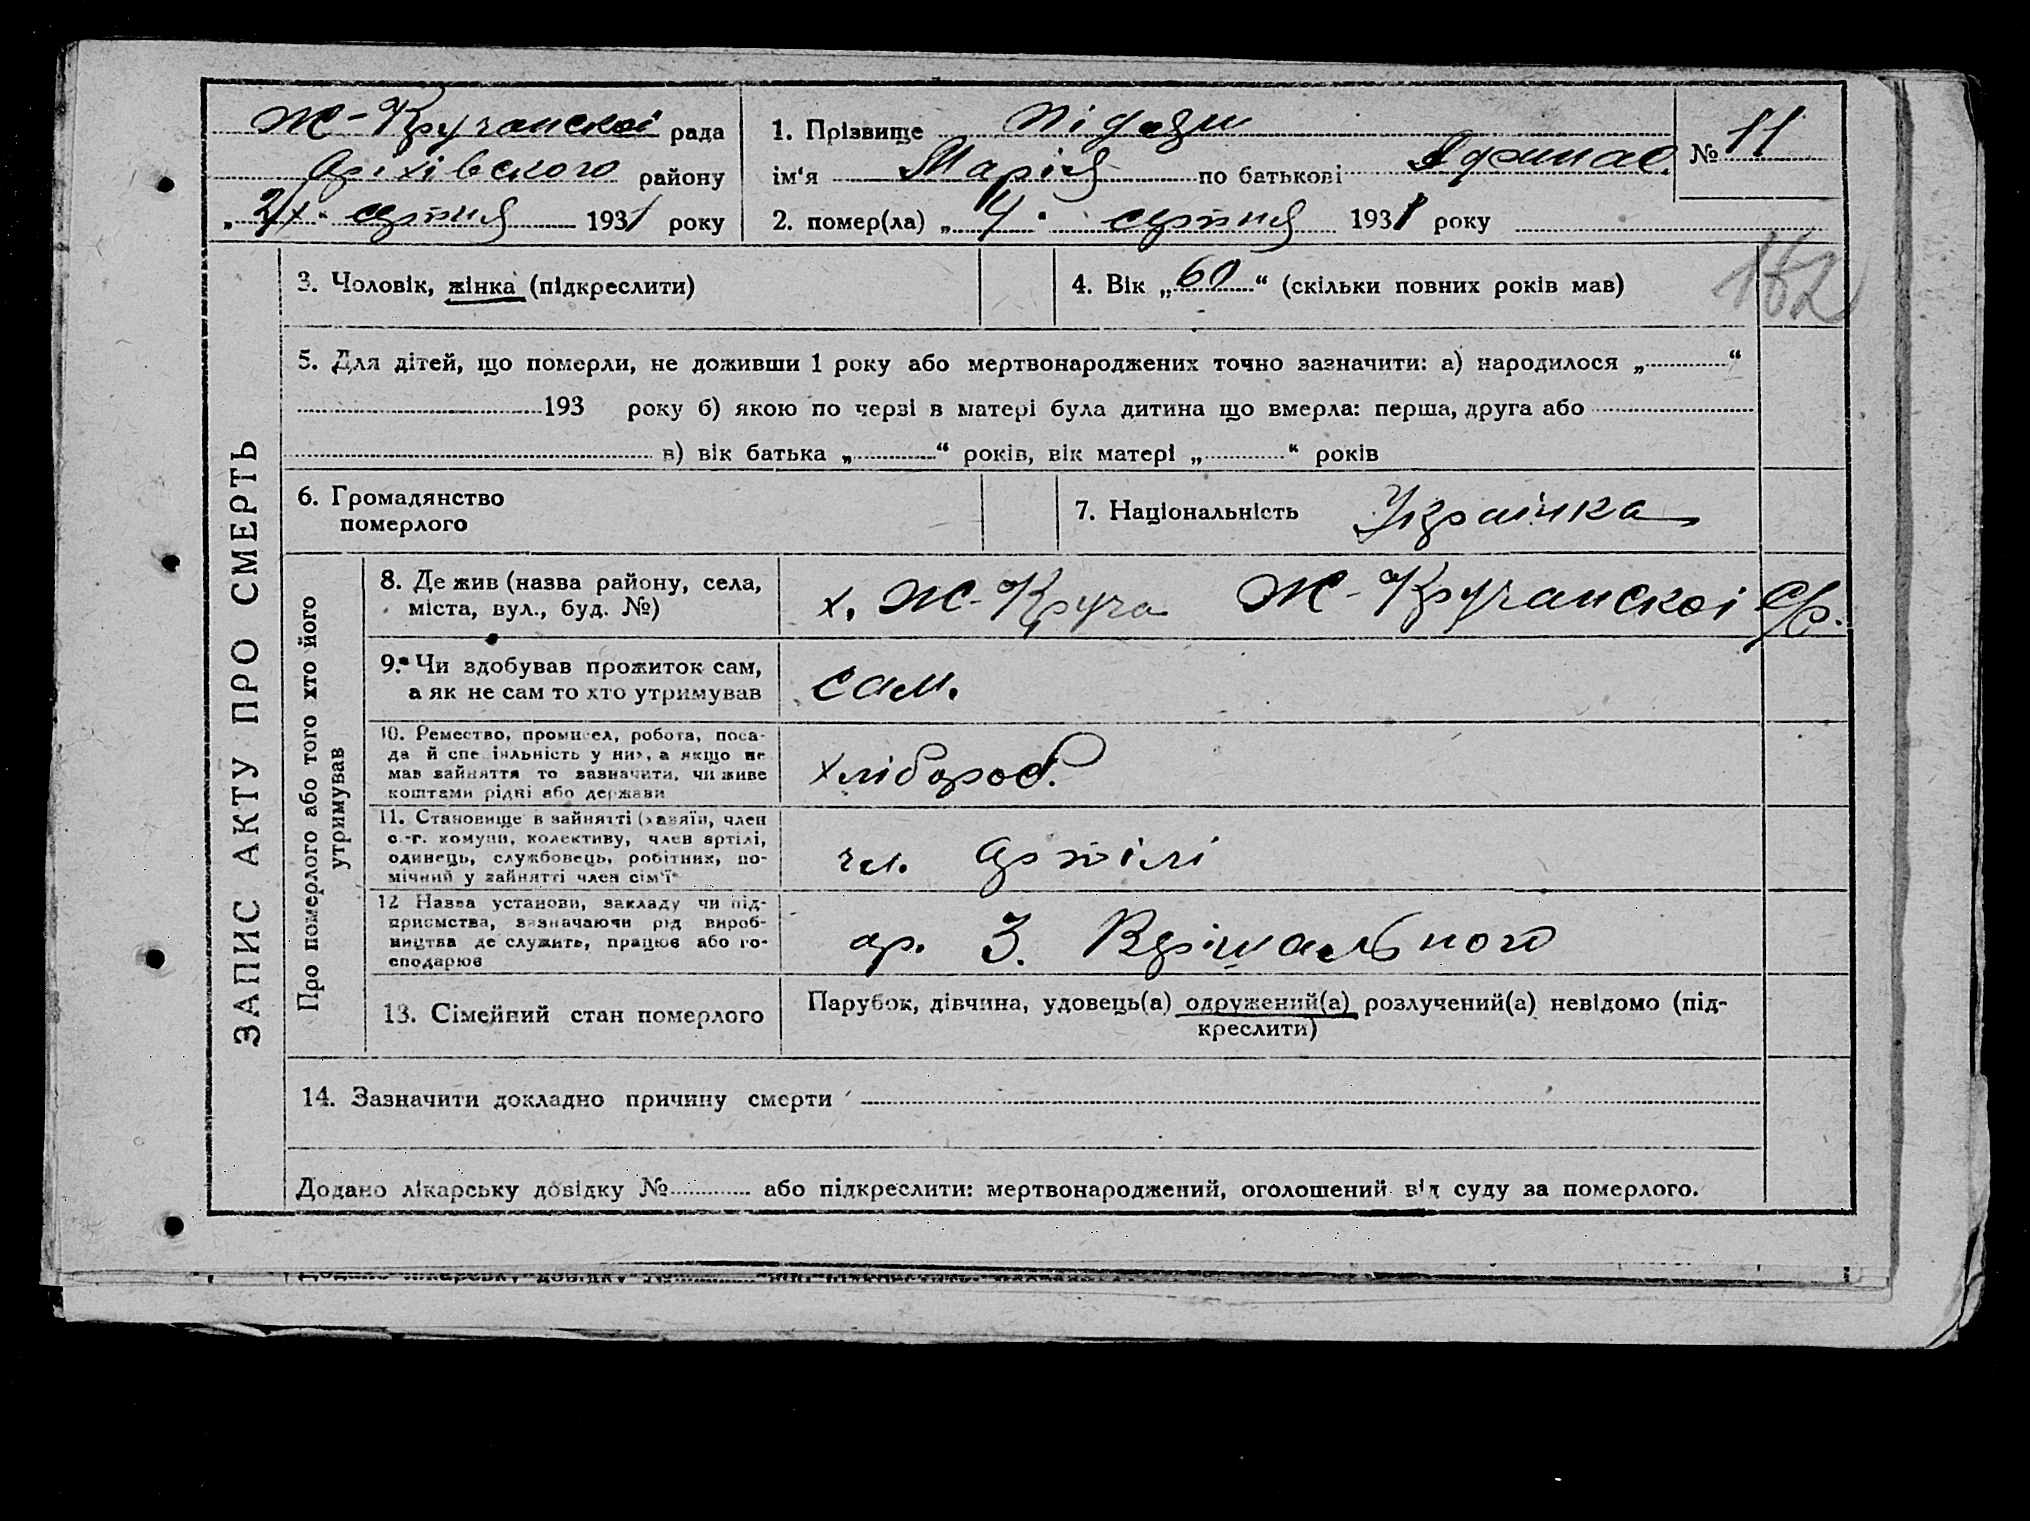 Ж-Кручанскоі рада
Оріхівського району
серпня 1931 року
1. Прізвище
ім'я Марія по батькові
2. помер(ла) „4“ серпня 1931 року
№ 11
162
ЗАПИС АКТУ ПРО СМЕРТЬ
3. Чоловік, жінка (підкреслити)
4. Вік „60“ (скільки повних років мав)
5. Для дітей, що померли, не доживши 1 року або мертвонароджених точно зазначити: а) народилося „ “
193 року б) якою по черзі в матері була дитина що вмерла: перша, друга або
в) вік батька „ “ років, вік матері „ “ років
6. Громадянство
померлого
7. Національність Украінка
Про померлого або того хто його
утримував
8. Де жив (назва району, села,
міста, вул., буд. №)
х. Ж-Круча Ж-Кручанскоі с/р.
9. Чи здобував прожиток сам,
а як не сам то хто утримував
сам.
10. Ремество, промисел, робота, поса-
да й спеціяльність у них, а якщо не
мав зайняття то зазначити, чи живе
коштами рідні або держави
хлібороб.
11. Становище в зайнятті (хазяїн, член
с.-г. комуни, колективу, член артілі,
одинець, службовець, робітник, по-
мічний у зайнятті член сім'ї
чл. артілі
12 Назва установи, закладу чи під-
приємства, зазначаючи рід вироб-
ництва де служить, працює або го-
сподарює
ар. З. Вірішального
13. Сімейний стан померлого
Парубок, дівчина, удовець(а) одружений(а) розлучений(а) невідомо (під-
креслити)
14. Зазначити докладно причину смерти
Додано лікарську довідку № або підкреслити: мертвонароджений, оголошений від суду за померлого.